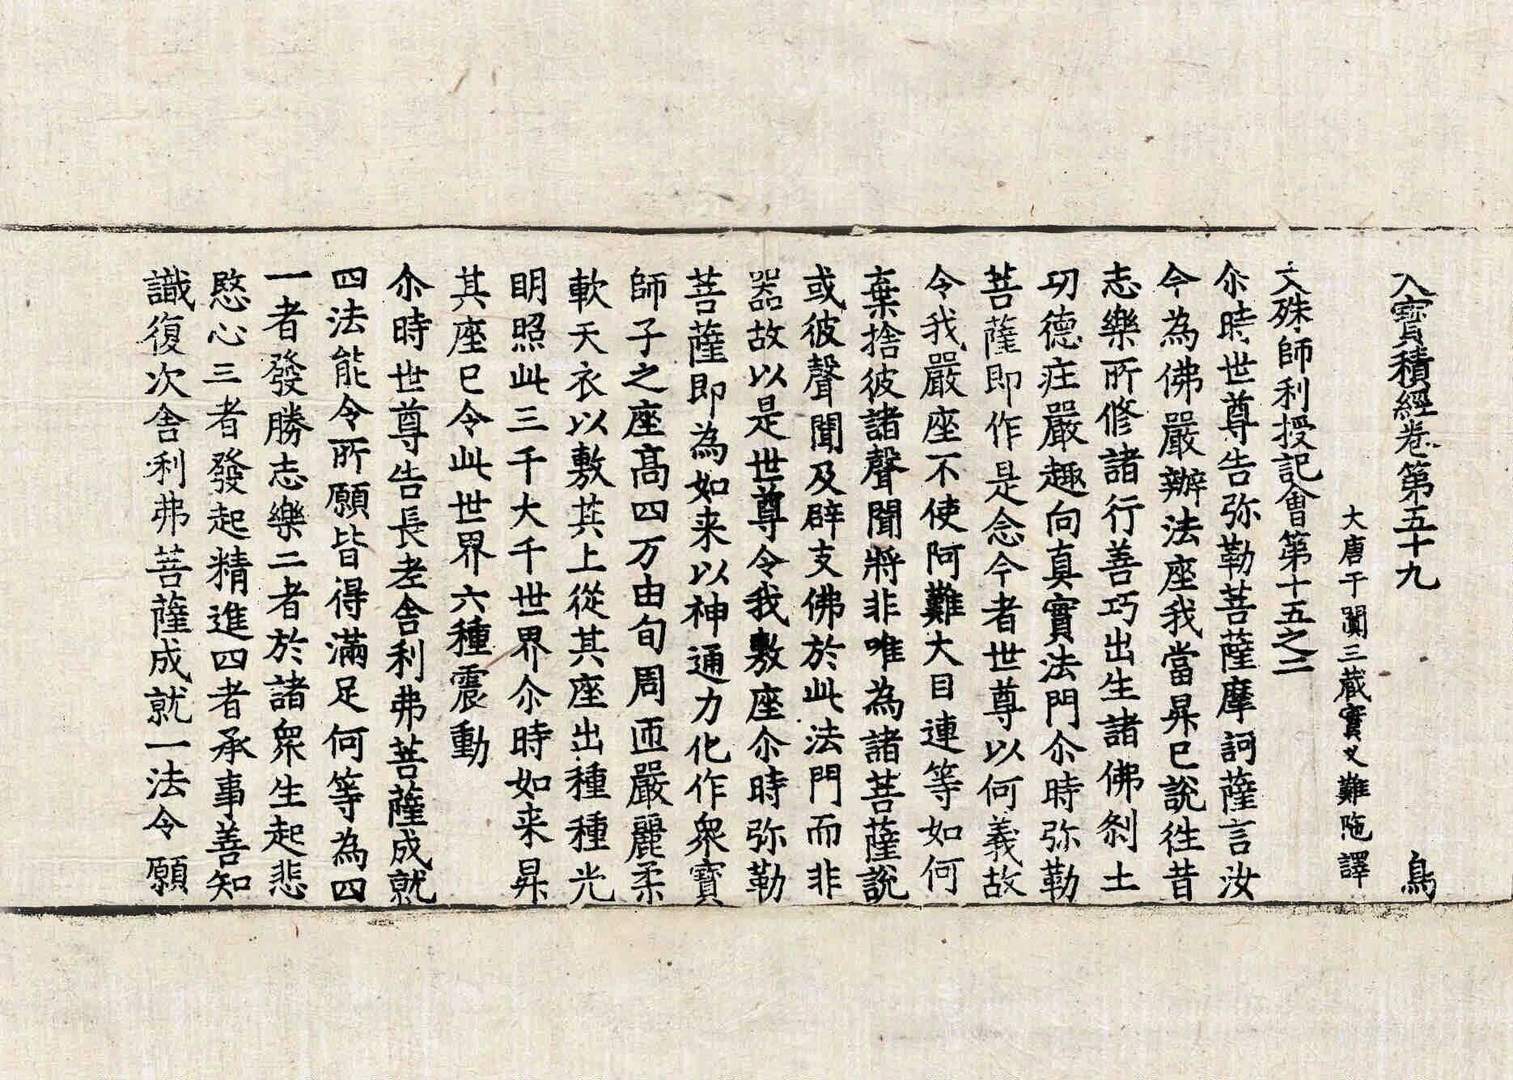 大寶積經卷第五十九 鳥
大唐于闐三藏實叉難陁譯
文殊師利授記會第十五之二
尒時世尊告弥勒菩薩摩訶薩言汝
今為佛嚴辦法座我當昇已說往昔
志樂所修諸行善巧出生諸佛剎土
功德庄嚴趣向真實法門尒時弥勒
菩薩即作是念今者世尊以何義故
令我嚴座不使阿難大目連等如何
棄捨彼諸聲聞將非唯為諸菩薩說
或彼聲聞及辟支佛於此法門而非
器故以是世尊令我敷座尒時弥勒
菩薩即為如来以神通力化作衆寶
師子之座高四万由旬周匝嚴麗柔
軟天衣以敷其上從其座出種種光
明照此三千大千世界尒時如来昇
其座已令此世界六種震動
尒時世尊告長老舍利弗菩薩成就
四法能令所願皆得滿足何等為四
一者發勝志樂二者於諸衆生起悲
愍心三者發起精進四者承事善知
識復次舍利弗菩薩成就一法令願